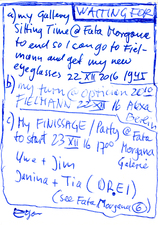 WAITING FOR
a) my Gallery
Sitting Time @ Fata Morgana
to end so I can go to Fiel-
mann and get my new
eyeglasses 22 XII 2016 1945
b) my turn @ optician 2010
FIELMANN 22 XII 16 Alexa
Berlin
c) My FINISSAGE / Party @ Fata
to start 23 XII 16 1700 Morgana
Galerie
Uwe + Jim
Janina + Tia (DR.EI)
(see Fata Morgana 6)